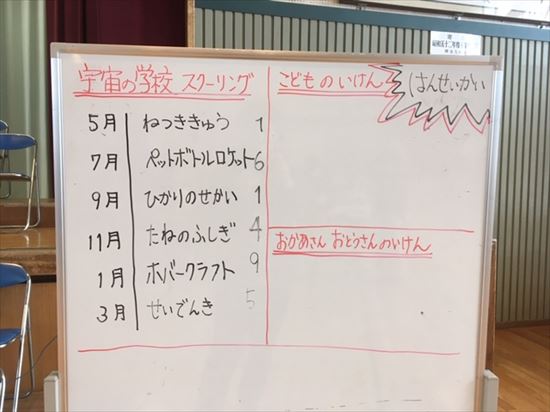 宇宙の学校 スクーリング
5月 ねつききゅう 1
7月 ペットボトルロケット 6
9月 ひかりのせかい 1
11月 たねのふしぎ 4
1月 ホバークラフト 9
3月 せいでんき 5
こどものいけん
はんせいかい
おかあさん おとうさんのいけん